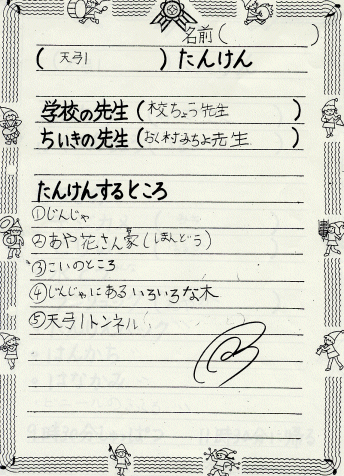 名前（　　　　）
（ 天弓1 ）たんけん
学校の先生（校ちょう先生　　）
ちいきの先生（おく村みちよ先生）
たんけんするところ
①じんじゃ
②あや花さん家（ほんどう）
③こいのところ
④じんじゃにあるいろいろな木
⑤天弓1トンネル